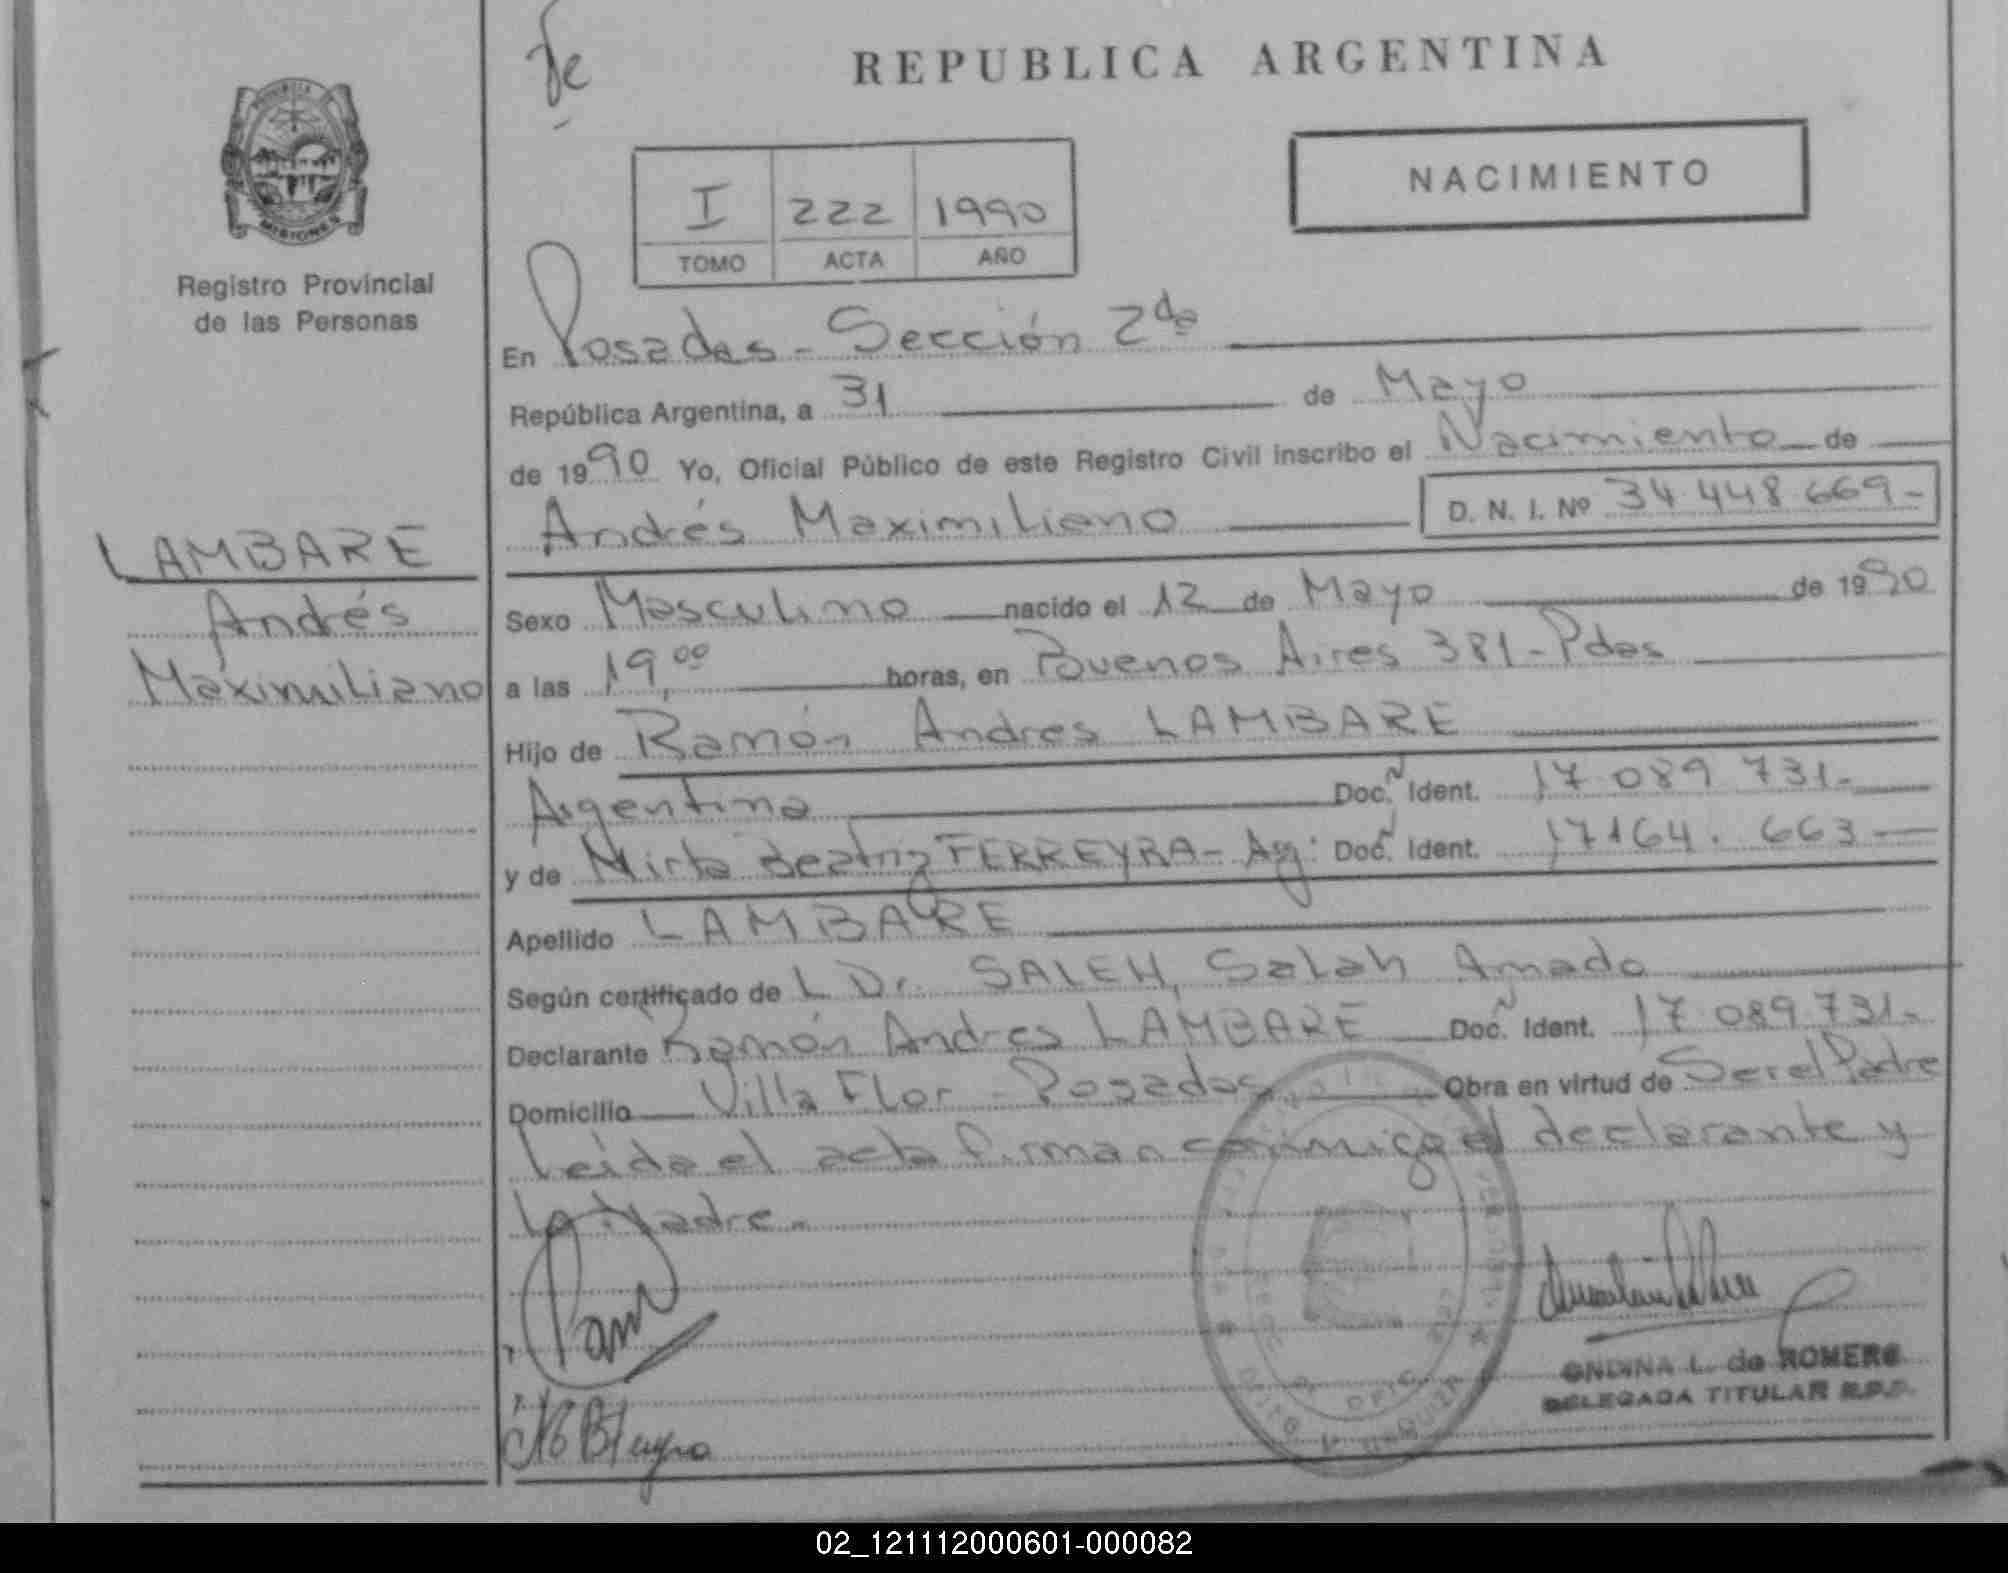 REPUBLICA ARGENTINA
PROVINCIA
MISIONES
Registro Provincial
de las Personas
NACIMIENTO
I 222 1990
TOMO ACTA AÑO
En Posadas - Sección 2da
República Argentina, a 31 de Mayo
de 1990 Yo, Oficial Público de este Registro Civil inscribo el Nacimiento de
Andrés Maximiliano D. N. I. Nº 34.448.669-
LAMBARE
Andrés
Maximiliano
Sexo Masculino nacido el 12 de Mayo de 1990
a las 19,00 horas, en Buenos Aires 381 - Pdas
Hijo de Ramón Andres LAMBARE
Argentina Doc. Ident. 17.089.731-
y de Mirta Beatriz FERREYRA - Arg: Doc. Ident. 17164.663
Apellido LAMBARE
Según certificado de L Dr. SALEH, Salah Amado
Declarante Ramón Andres LAMBARE Doc. Ident. 17.089.731-
Domicilio Villa Flor - Posadas Obra en virtud de Ser el Padre
Leida el acta firman conmigo el declarante y
la Madre.-
ONDINA L. de ROMERO
DELEGADA TITULAR R.P.P.
02_121112000601-000082